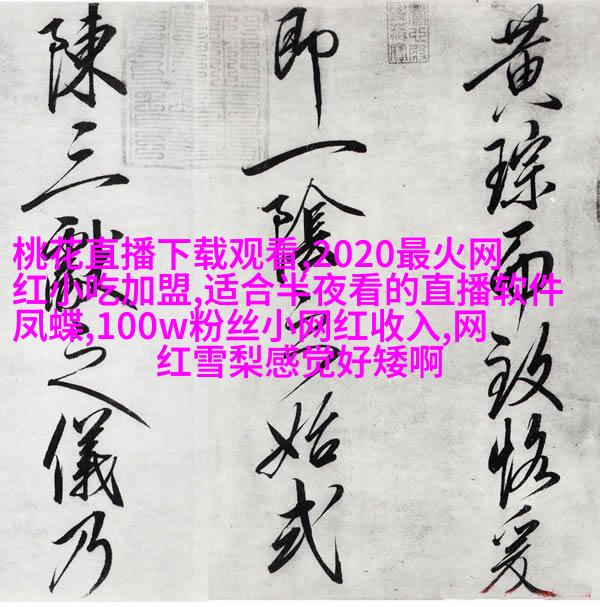 黄琮而致恪爰
即一陰始式
陳三獻之儀乃
桃花直播下载观看,2020最火网
红小吃加盟,适合半夜看的直播软件
凤蝶,100w粉丝小网红收入,网
红雪梨感觉好矮啊